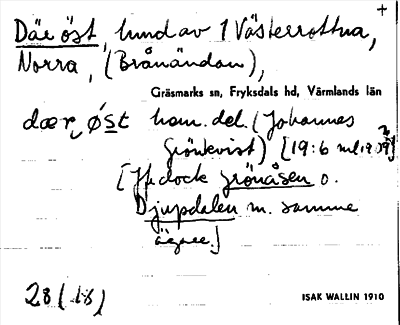 +
Där öst, hmd av 1 Västerrottna,
Norra, (Brånändan),
Gräsmarks sn, Fryksdals hd, Värmlands län
dær øst hem. del. (Johannes
Grönkvist) [19:6
[Jfr dock Grönåsen o.
Djupdalen m. samme
ägare.]
28 (18)
ISAK WALLIN 1910